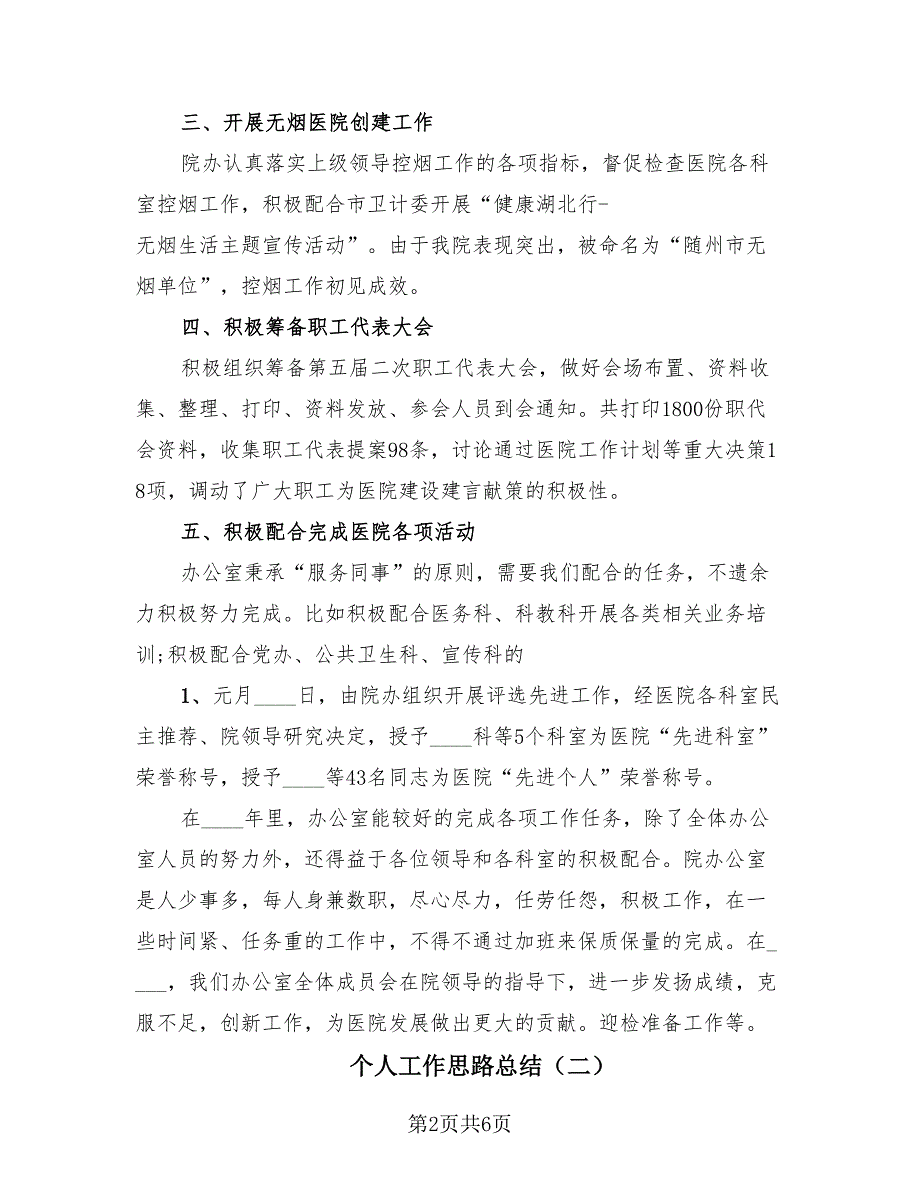 三、开展无烟医院创建工作
院办认真落实上级领导控烟工作的各项指标，督促检查医院各科
室控烟工作，积极配合市卫计委开展“健康湖北行-
无烟生活主题宣传活动”。由于我院表现突出，被命名为“随州市无
烟单位”，控烟工作初见成效。
四、积极筹备职工代表大会
积极组织筹备第五届二次职工代表大会，做好会场布置、资料收
集、整理、打印、资料发放、参会人员到会通知。共打印1800份职代
会资料，收集职工代表提案98条，讨论通过医院工作计划等重大决策1
8项，调动了广大职工为医院建设建言献策的积极性。
五、积极配合完成医院各项活动
办公室秉承“服务同事”的原则，需要我们配合的任务，不遗余
力积极努力完成。比如积极配合医务科、科教科开展各类相关业务培
训;积极配合党办、公共卫生科、宣传科的
1、元月____日，由院办组织开展评选先进工作，经医院各科室民
主推荐、院领导研究决定，授予____科等5个科室为医院“先进科室”
荣誉称号，授予____等43名同志为医院“先进个人”荣誉称号。
在____年里，办公室能较好的完成各项工作任务，除了全体办公
室人员的努力外，还得益于各位领导和各科室的积极配合。院办公室
是人少事多，每人身兼数职，尽心尽力，任劳任怨，积极工作，在一
些时间紧、任务重的工作中，不得不通过加班来保质保量的完成。在_
___，我们办公室全体成员会在院领导的指导下，进一步发扬成绩，克
服不足，创新工作，为医院发展做出更大的贡献。迎检准备工作等。
个人工作思路总结（二）
第2页共6页